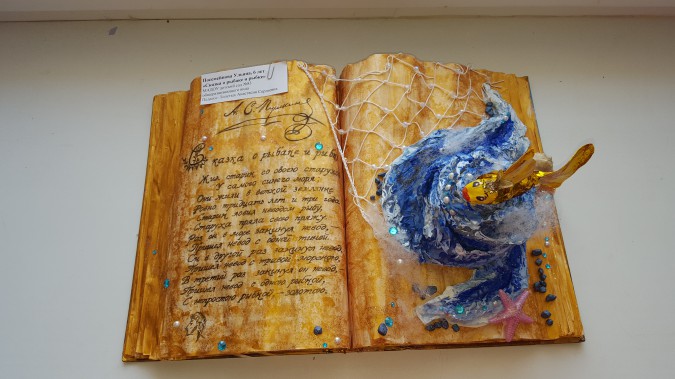 «Сказка о рыбаке и рыбке»
А. С. Пушкин
Сказка о рыбаке и рыбке
Жил старик со своею старухой
У самого синего моря;
Они жили в ветхой землянке
Ровно тридцать лет и три года.
Старик ловил неводом рыбу,
Старуха пряла свою пряжу.
Раз он в море закинул невод,
Пришел невод с одною тиной.
Он в другой раз закинул невод,
Пришел невод с травой морскою,
В третий раз закинул он невод,
Пришел невод с одною рыбкой,
С непростою рыбкой – золотою,